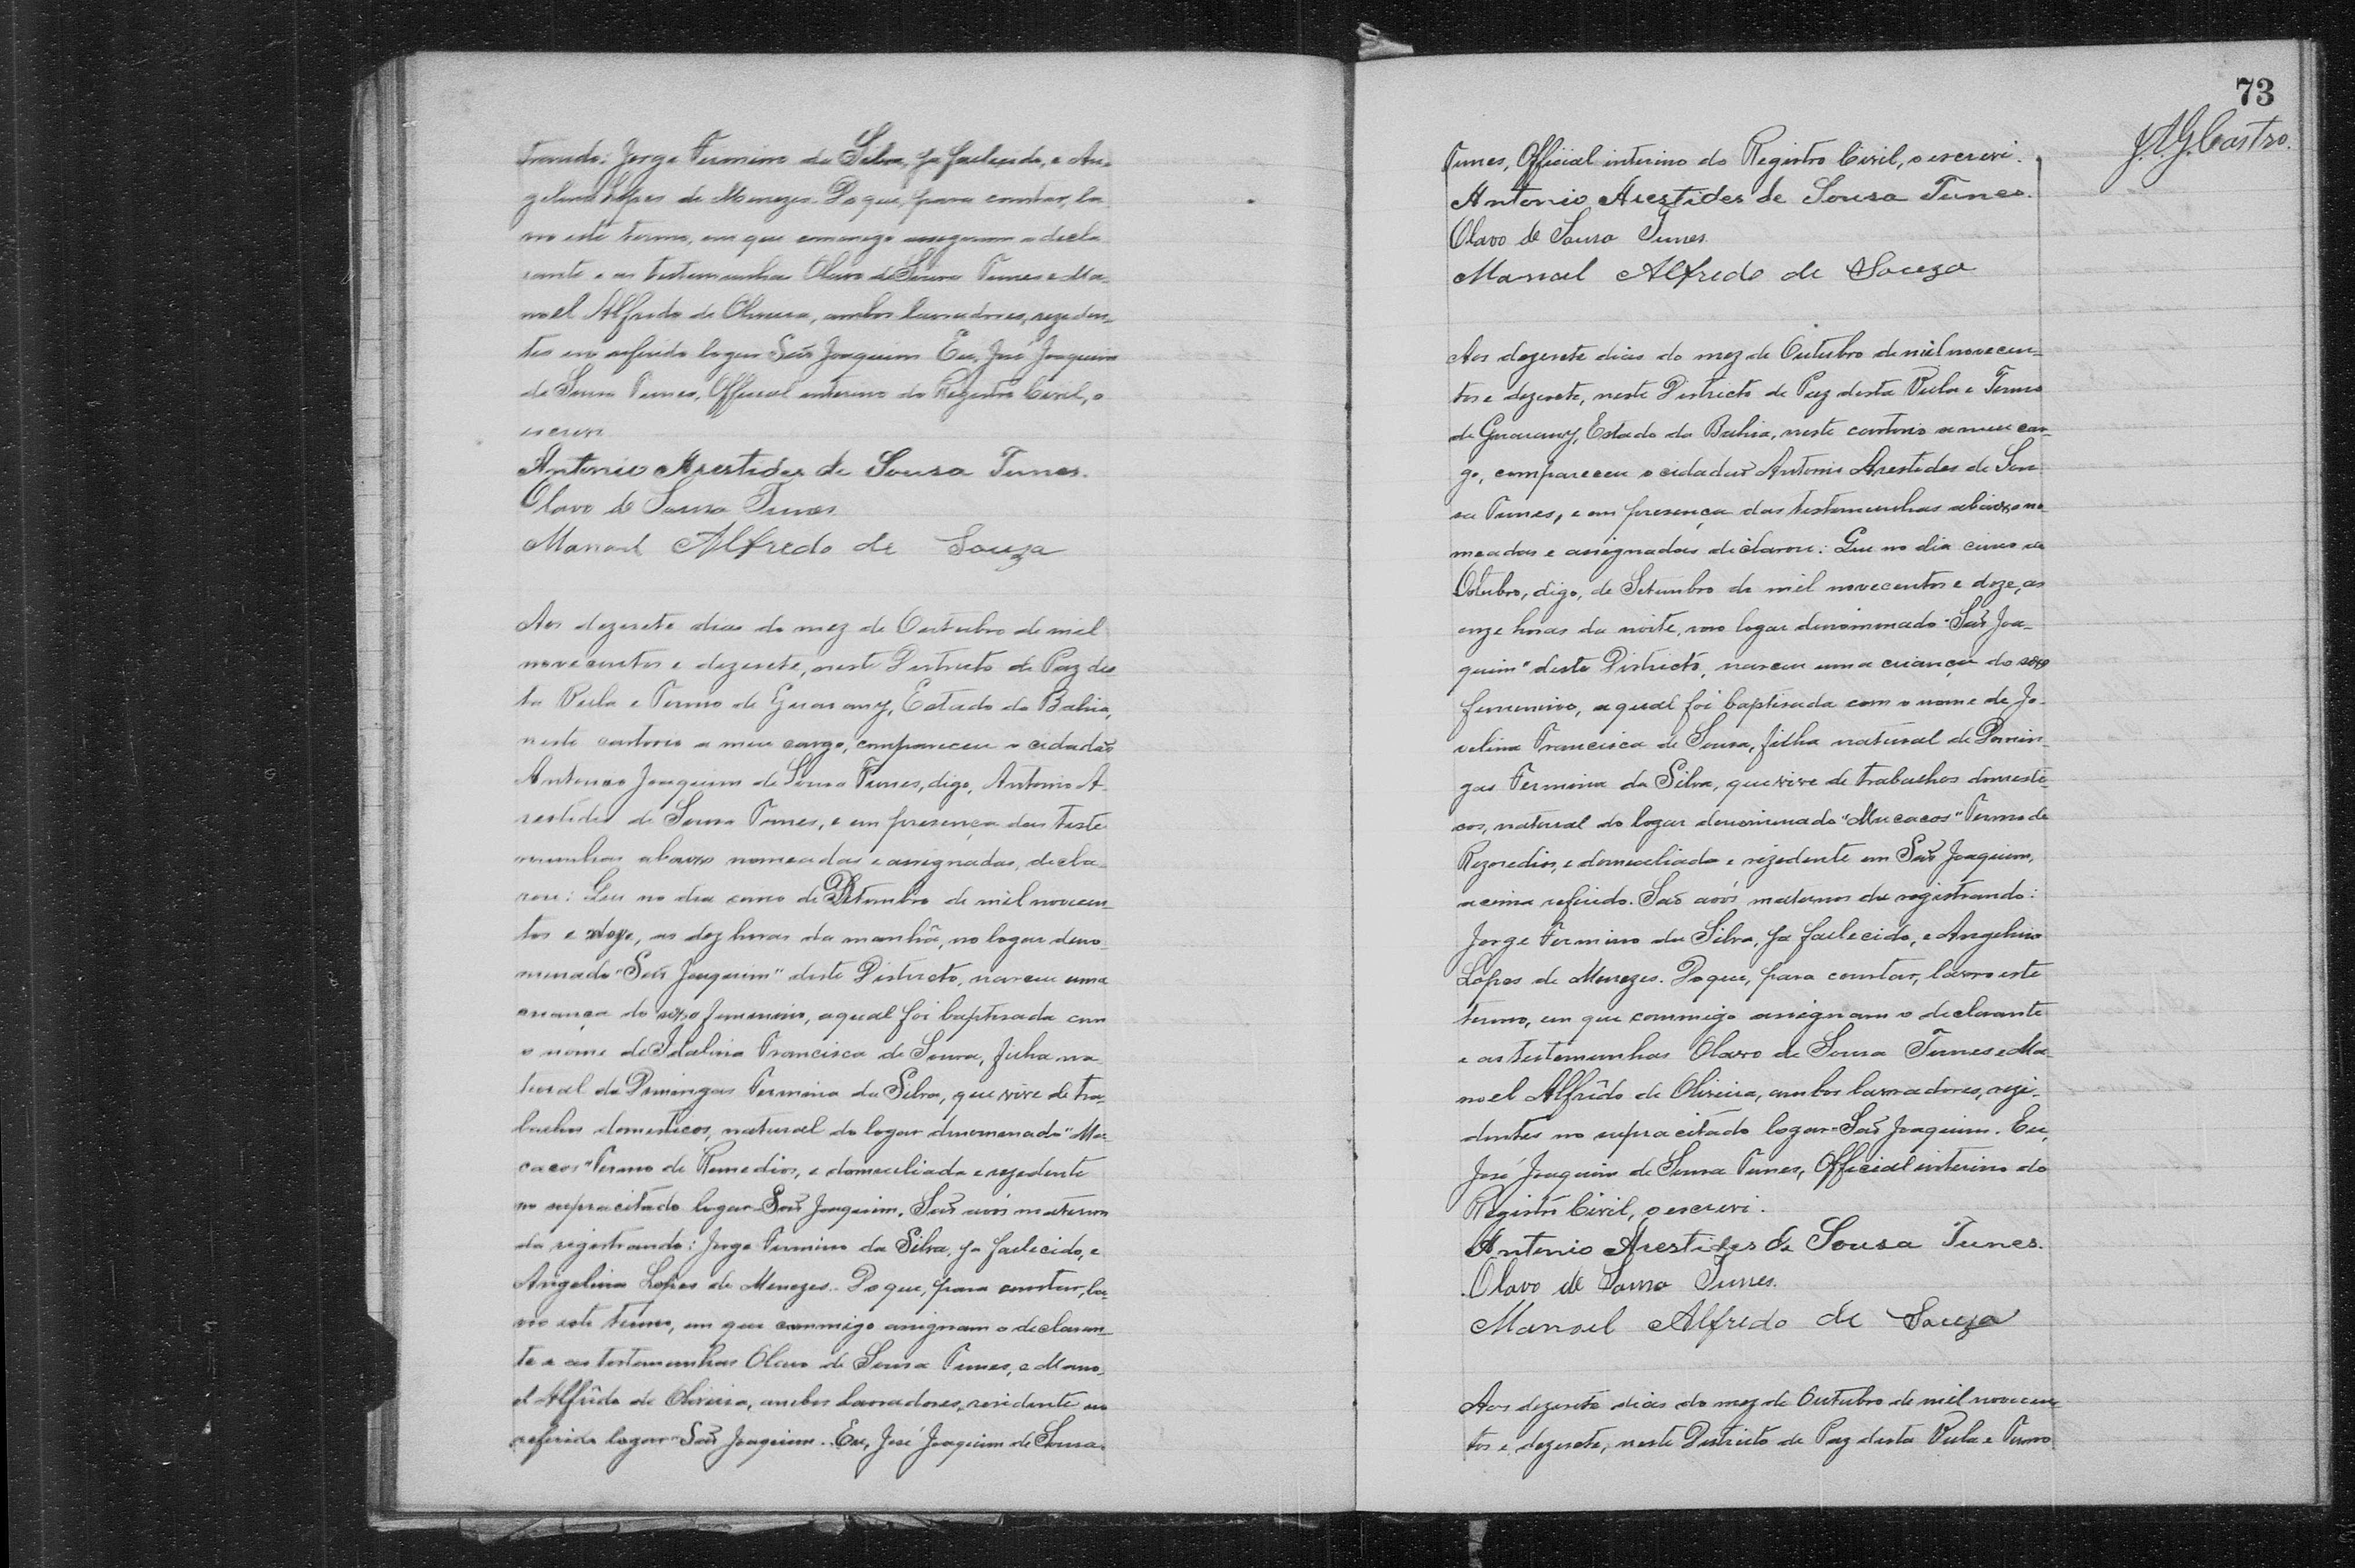 trando: Jorge Firmino da Silva, ja fallecido, e An-
gelina Lopes de Menezes. Do que, para constar, la
vro este termo, em que commigo assignam o decla
rante e as testemunhas Olavo de Sousa Tunes e Ma-
noel Alfredo de Oliveira, ambos lavradores, reziden-
tes no referido logar São Joaquim. Eu, José Joaquim
de Sousa Tunes, Official interino do Registro Civil, o
escrevi.
Antonio Arestides de Sousa Tunes.
Olavo de Sousa Tunes
Manoel Alfredo de Souza
Aos dezesete dias do mez de Outubro de mil
novecentos e dezesete, neste Districto de Paz des
ta Villa e Termo de Guarany, Estado da Bahia,
neste cartorio a meu cargo, compareceu o cidadão
Antonio Joaquim de Sousa Tunes, digo, Antonio A-
restides de Sousa Tunes, e em presença das teste
munhas abaixo nomeadas e assignadas, decla-
rou: Que no dia cinco de Setembro de mil novecen-
tos e doze, as dez horas da manhã, no logar deno-
minado "São Joaquim" deste Districto, nasceu uma
criança do sexo femenino, a qual foi baptisada com
o nome de Idalina Francisca de Sousa, filha na-
tural de Domingas Firmina da Silva, que vive de tra-
balhos domesticos, natural do logar denominado "Ma-
cacos" Termo de Remedios, e domeciliada e rezedente
no supracitado logar São Joaquim. São avós maternos
da registrando: Jorge Firmino da Silva, ja fallecido, e
Angelina Lopes de Menezes. Do que, para constar, la-
vro este termo, em que commigo assignam o declaran-
te e as testemunhas Olavo de Sousa Tunes, e Mano-
el Alfredo de Oliveira, ambos lavradores, residente no
referido logar São Joaquim. Eu, José Joaquim de Sousa
73
J.A.G. Castro.
Tunes, Official interino do Registro Civil, o escrevi.
Antonio Arestides de Sousa Tunes.
Olavo de Sousa Tunes.
Manoel Alfredo de Souza
Aos dezesete dias do mez de Outubro de mil novecen-
tos e dezesete, neste Districto de Paz desta Villa e Termo
de Guarany, Estado da Bahia, neste cartorio a meu car-
go, compareceu o cidadão Antonio Arestides de Sou-
sa Tunes, e em presença das testemunhas abaixo no-
meadas e assignadas declarou: Que no dia cinco de
Outubro, digo, de Setembro de mil novecentos e doze, as
onze horas da noite, no logar denominado "São Joa-
quim" deste Districto, nasceu uma criança do sexo
femenino, a qual foi baptisada com o nome de Jo-
velina Francisca de Sousa, filha natural de Domin-
gas Firmina da Silva, que vive de trabalhos domesti-
cos, natural do logar denominado "Macacos" Termo de
Remedios, e domeciliada e rezedente em São Joaquim,
acima referido. São avós maternos da registrando:
Jorge Firmino da Silva, ja fallecido, e Angelina
Lopes de Menezes. Do que, para constar, lavro este
termo, em que commigo assignam o declarante
e as testemunhas Olavo de Sousa Tunes e Ma-
noel Alfrêdo de Oliveira, ambos lavradores, rezi-
dentes no supracitado logar São Joaquim. Eu,
José Joaquim de Sousa Tunes, Official interino do
Registro Civil, o escrevi.
Antonio Arestides de Sousa Tunes.
Olavo de Sousa Tunes.
Manoel Alfredo de Souza
Aos dezesete dias do mez de Outubro de mil novecen
tos e dezesete, neste Districto de Paz desta Villa e Termo